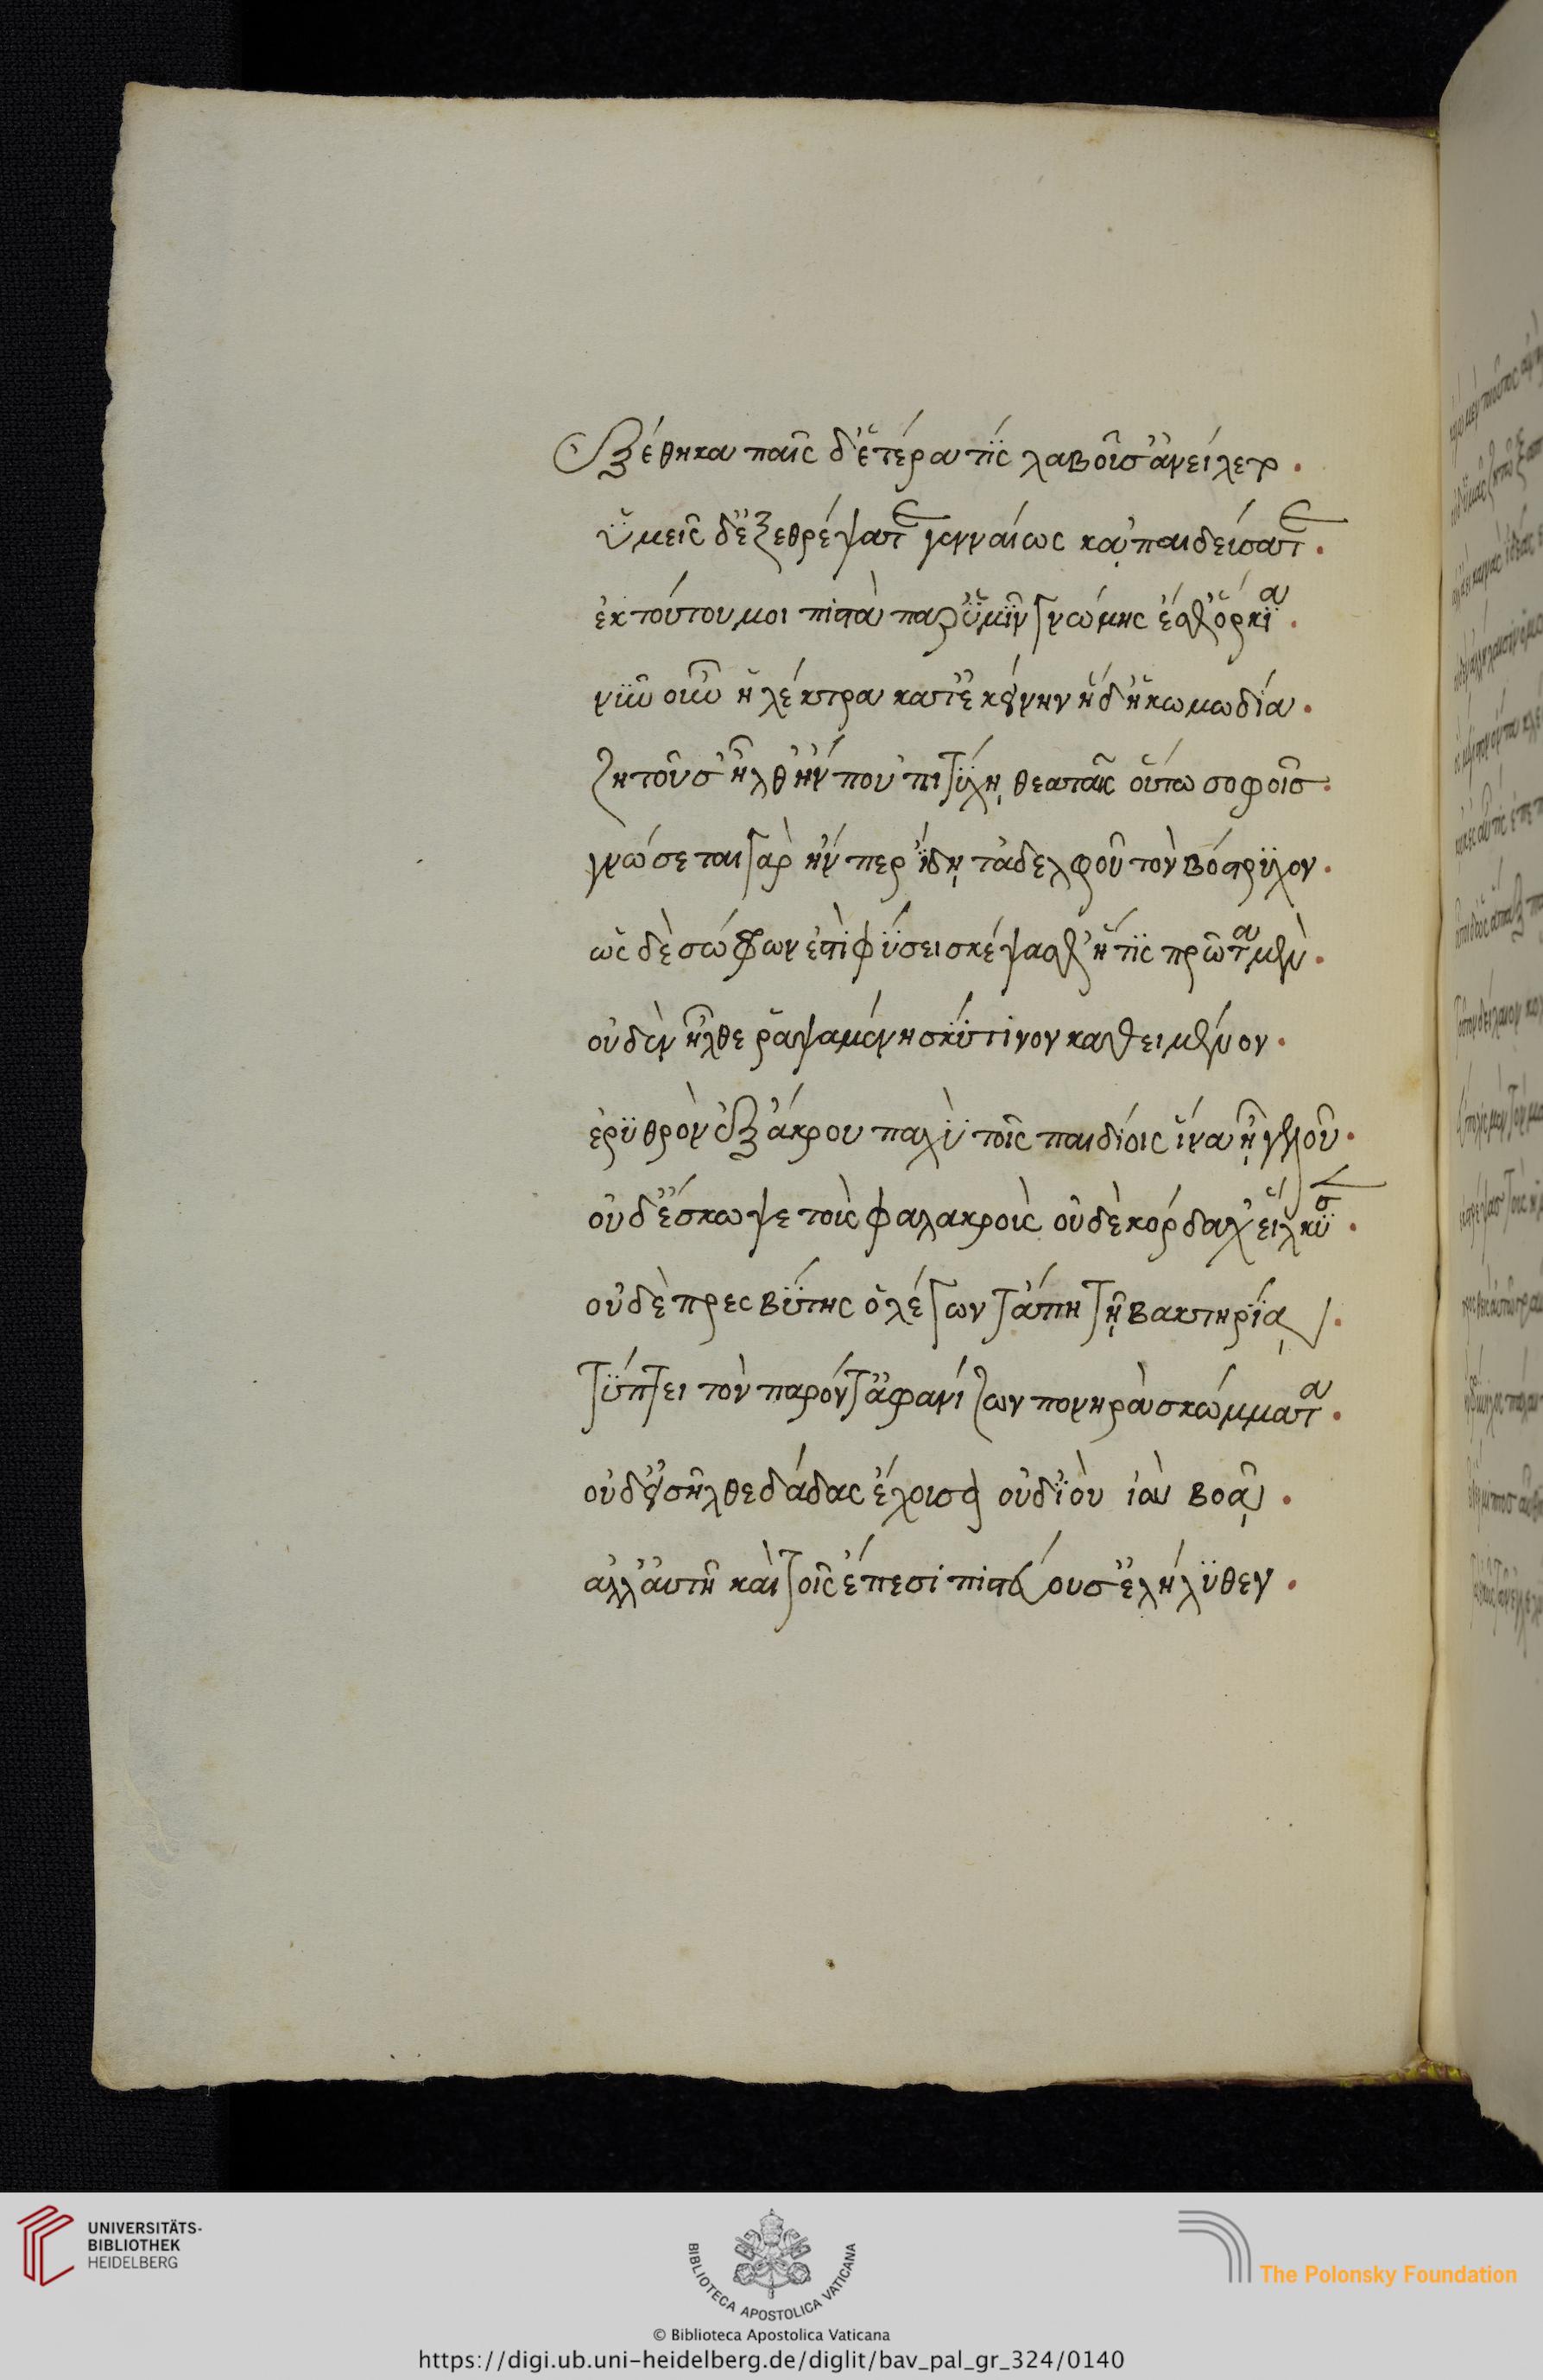 ἐξέθηκα παῖς δ' ἑτέρα τὶς λαβοῦσ' ἀνείλετο.
ὑμεῖς δ' ἐξεθρέψατε γενναίως κἀπαιδεύσατε.
ἐκ τούτου μοι πιστὰ παρ' ὑμῖν γνώμης ἔσθ' ὅρκια.
νῦν οὖν ἠλέκτραν κατ' ἐκείνην ἥδ' ἡ κωμωδία.
ζητοῦσ' ἦλθ' ἤν που 'πιτύχῃ θεαταῖς οὕτω σοφοῖς.
γνώσεται γὰρ ἤν περ ἴδῃ τἀδελφοῦ τὸν βόστρυχον.
ὡς δὲ σώφρων ἐστὶ φύσει σκέψασθ' ἥτις πρῶτα μὲν.
οὐδὲν ἦλθε ῥαψαμένη σκύτινον καθειμένον.
ἐρυθρὸν ἐξ ἄκρου παχὺ τοῖς παιδίοις ἵνα ᾖ γέλως.
οὐδ' ἔσκωψε τοὺς φαλακροὺς οὐδὲ κόρδαχ' εἵλκυσεν.
οὐδὲ πρεσβύτης ὁ λέγων τἄπη τῇ βακτηρίᾳ.
τύπτει τὸν παρόντ' ἀφανίζων πονηρὰ σκώμματα.
οὐδ' εἰσῆλθε δᾷδας ἔχουσα οὐδ' ἰοὺ ἰοὺ βοᾷ.
ἀλλ' αὑτῇ καὶ τοῖς ἔπεσι πιστεύουσ' ἐλήλυθεν.
UNIVERSITÄTS-
BIBLIOTHEK
HEIDELBERG
BIBLIOTECA APOSTOLICA VATICANA
The Polonsky Foundation
© Biblioteca Apostolica Vaticana
https://digi.ub.uni-heidelberg.de/diglit/bav_pal_gr_324/0140